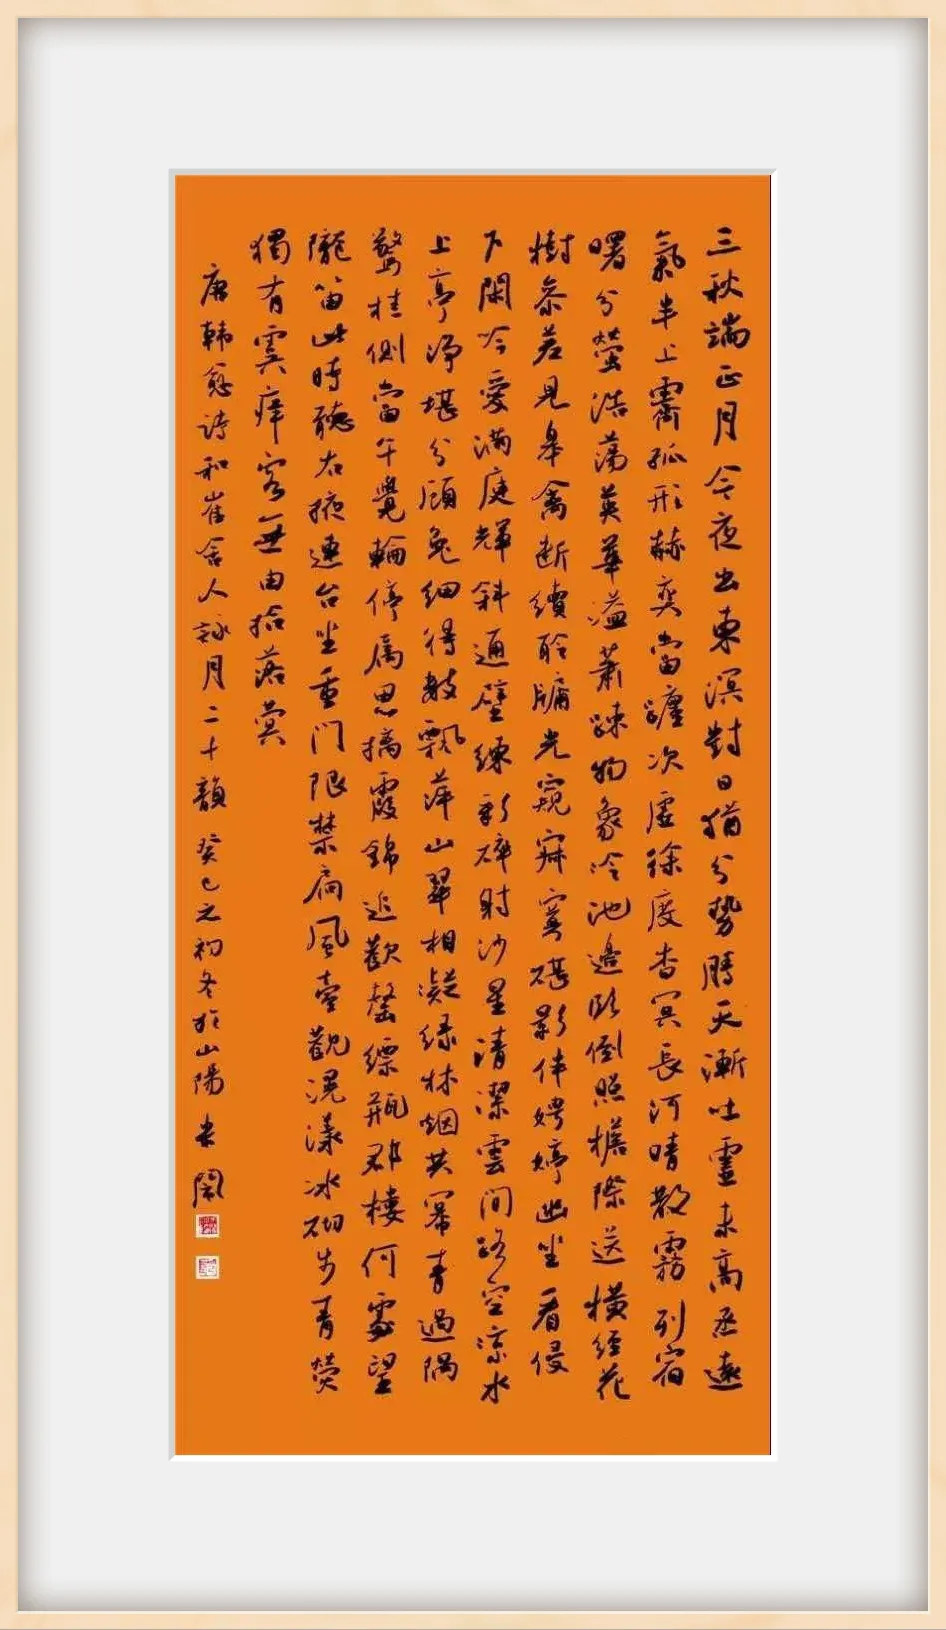 三秋端正月今夜出東溟對日猶分勢騰天漸吐靈未高烝遠
氣半上霽孤形赫奕當躔次虛徐度杳冥長河晴散霧列宿
曙分螢浩蕩英華溢蕭疎物象泠池邊臨倒照檐際送橫經花
樹參差見皋禽斷續聆牖光窺寂寞砧影伴娉婷幽坐看侵
戶閑吟愛滿庭輝斜通壁練彩碎射沙星清潔雲間路空涼水
上亭淨堪分顧兔細得數飄萍山翠相凝綠林烟共冪青過隅
驚桂側當午覺輪停屬思摛霞錦追歡罄縹瓶郡樓何處望
隴笛此時聽右掖連台坐重門限禁扃風臺觀滉漾冰砌步青熒
獨有虞庠客無由拾落蓂
唐韓愈詩和崔舍人詠月二十韻癸巳之初冬於山陽